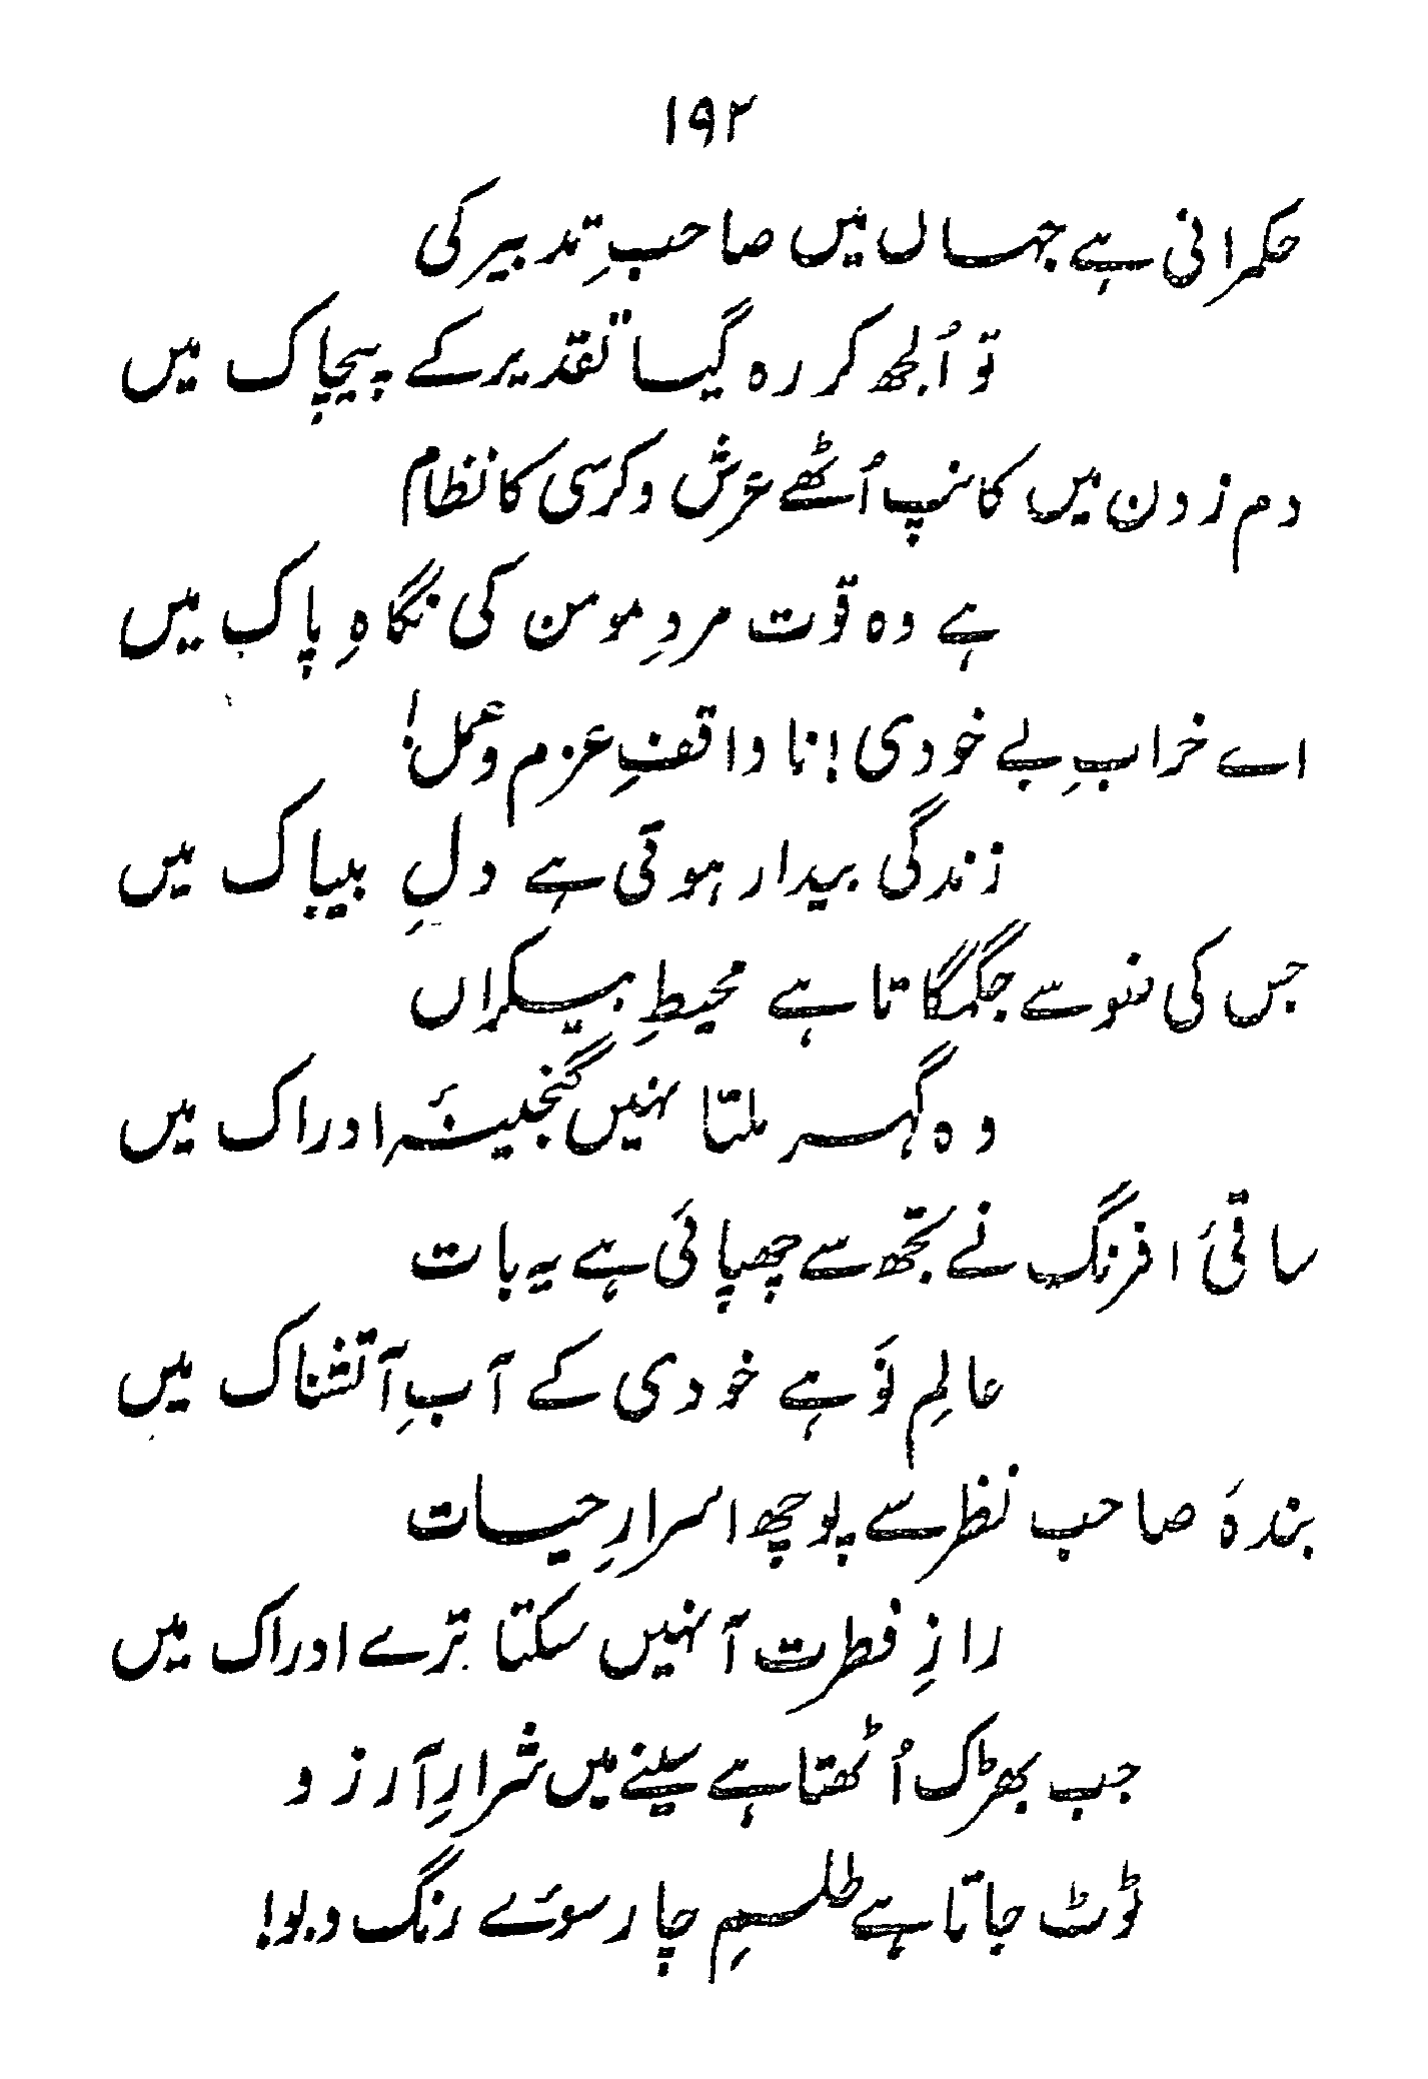 ۱۹۲
حکمرانی ہے جہاں میں صاحبِ تدبیر کی
تو اُلجھ کر رہ گیا تقدیر کے پیچاک میں
دم زدن میں کانپ اُٹھے عرش و کرسی کا نظام
ہے وہ قوّت مردِ مومن کی نگاہِ پاک میں
اے خرابِ بے خودی! نا واقفِ عزم و عمل!
زندگی بیدار ہوتی ہے دلِ بیباک میں
جس کی ضو سے جگمگاتا ہے محیطِ بیکراں
وہ گہر ملتا نہیں گنجینۂ ادراک میں
ساقیٔ افرنگ نے تجھ سے چھپائی ہے یہ بات
عالمِ نَو ہے خودی کے آبِ آتشناک میں
بندۂ صاحب نظر سے پوچھ اسرارِ حیات
رازِ فطرت آ نہیں سکتا ترے ادراک میں
جب بھڑک اُٹھتا ہے سینے میں شرارِ آرزو
ٹوٹ جاتا ہے طلسمِ چار سوئے رنگ و بو!